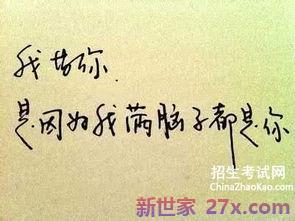 我 你
是因为我满脑子都是你
招生考试网
ChinaZhaoKao.com
新世家 27x.com